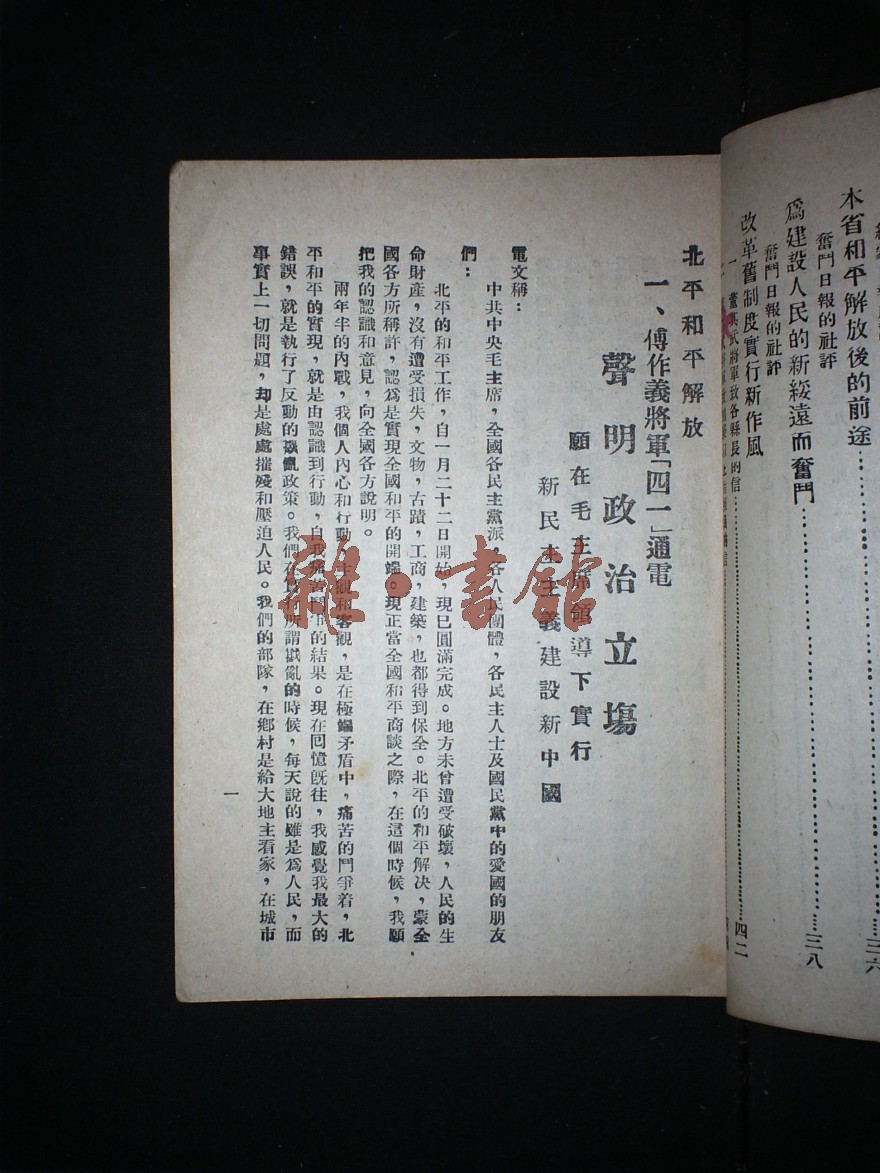 本省和平解放後的前途……三六
奮鬥日報的社評
爲建設人民的新綏遠而奮鬥……三八
奮鬥日報的社評
改革舊制度實行新作風
一 董其武將軍致各縣長的信……四二
北平和平解放
一、傅作義將軍「四一」通電
聲明政治立塲
願在毛主席領導下實行
新民主主義建設新中國
電文稱：
中共中央毛主席，全國各民主黨派，各人民團體，各民主人士及國民黨中的愛國的朋友
們：
北平的和平工作，自一月二十二日開始，現已圓滿完成。地方未曾遭受破壞，人民的生
命財產，沒有遭受損失，文物，古蹟，工商，建築，也都得到保全。北平的和平解決，蒙全
國各方所稱許，認爲是實現全國和平的開端。現正當全國和平商談之際，在這個時候，我願
把我的認識和意見，向全國各方說明。
兩年半的內戰，我個人內心和行動，主觀和客觀，是在極端矛盾中，痛苦的鬥爭着，北
平和平的實現，就是由認識到行動，自我痛苦鬥爭的結果。現在回憶旣往，我感覺我最大的
錯誤，就是執行了反動的戡亂政策。我們在實行所謂戡亂的時候，每天說的雖是爲人民，而
事實上一切問題，却是處處摧殘和壓迫人民。我們的部隊，在鄉村是給大地主看家，在城市
一
雜·書館